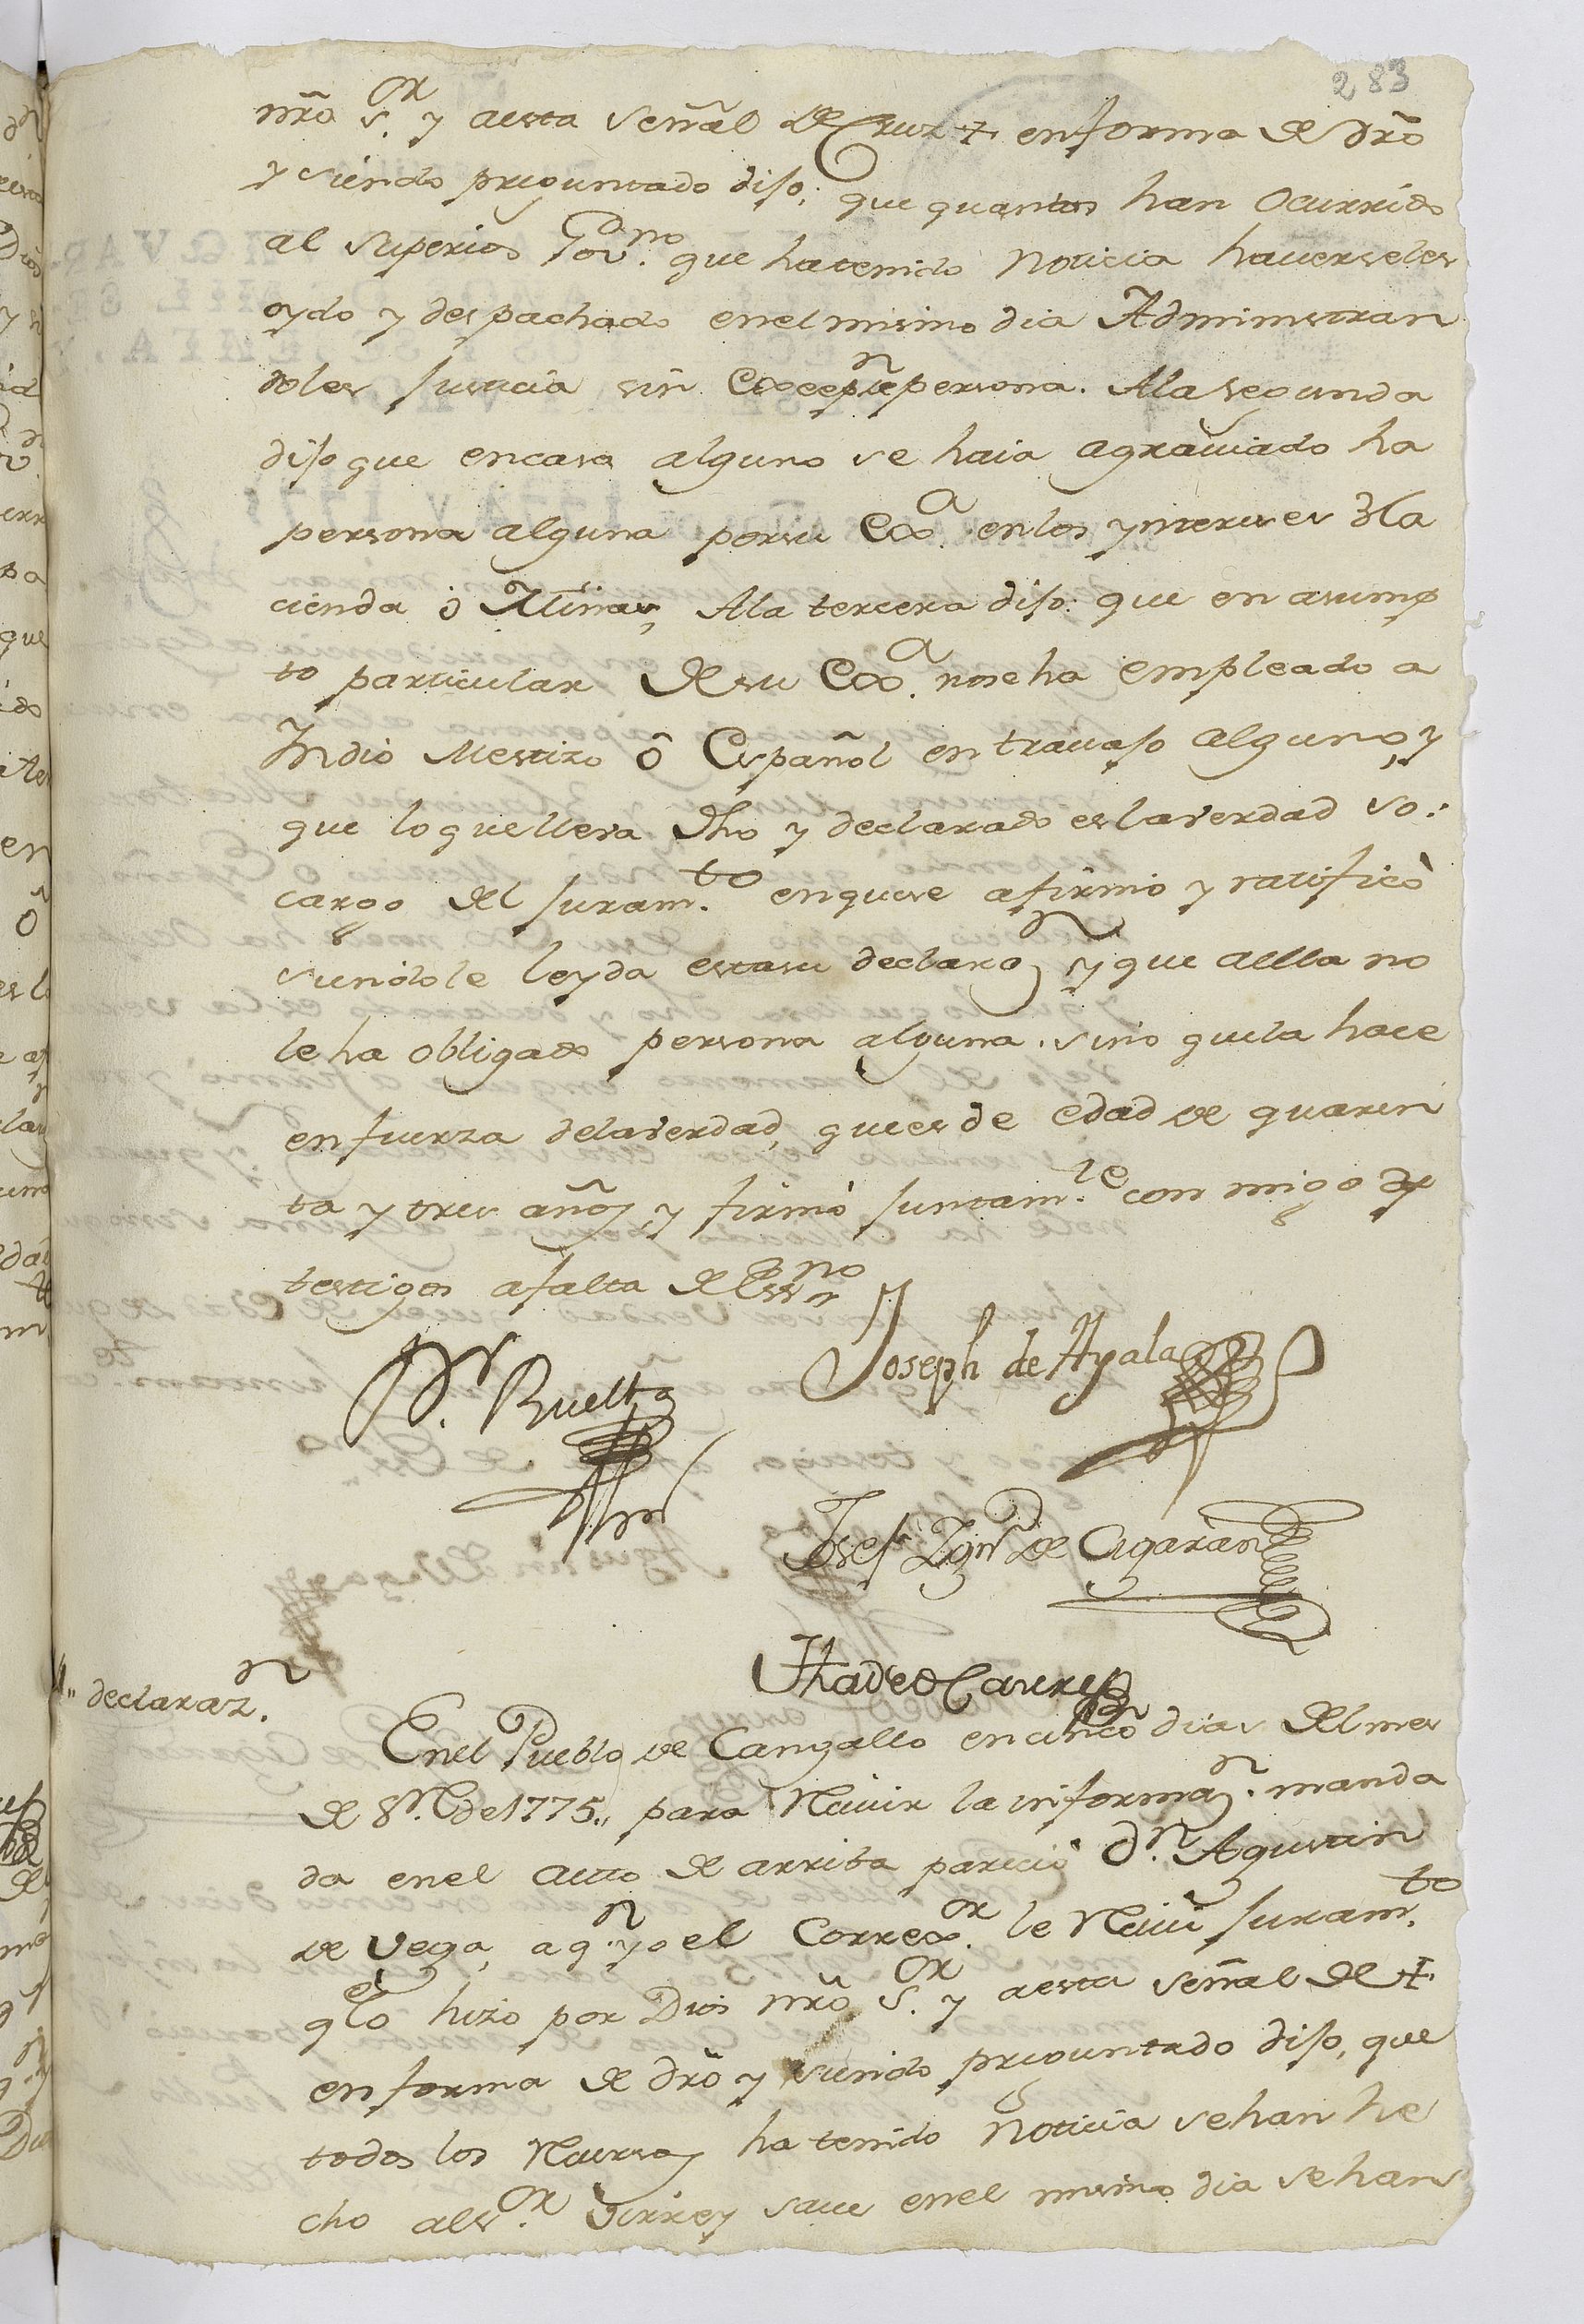 283
nr̃o S.or y a esta señal de Cruz + en forma de dr̃o
y siendo preguntado dijo; que quantos han ocurrido
al Superior Gov.no que ha tenido noticia haverseles
oydo y despachado en el mismo dia Administran
doles Justicia sin Excepn de persona. A la segunda
dijo que en cosa alguno se haia agraviado ha
persona alguna por su Exa. en los yntereses Ha
cienda ó Minas, A la tercera dijo: que en asump
to particular de su Exa. no se ha empleado a
Indio Mestizo ô Español en travajo alguno, y
que lo que lleva dho y declarado es la verdad so:
cargo del Juram.to en que se afirmó y ratificò
siendole leyda esta su declaraz.n y que a ella no
le ha obligado persona alguna. sino que la hace
en fuerza de la verdad, que es de edad de quaren
ta y tres años, y firmò Juntam.te con migo y
testigos a falta de Ess.no
D.r Ruelta
Joseph de Ayala
Josef Ign.o de Cigaràn
Thadeo Caure
declaraz.n
En el Pueblo de Cangallo en cinco dias del mes
de 8.re de 1775,, para Recivir la informaz.n manda
da en el auto de arriba parecio d.n Agustin
de Vega, a q.n yo el Correx.or le Recivi Juram.to
q.e lo hizo por Dios nr̃o S.or y a esta señal de +
en forma de dr̃o y siendo preguntado dijo, que
todos los Recursos ha tenido noticia se han he
cho al S.or Virrey save en el mismo dia se han